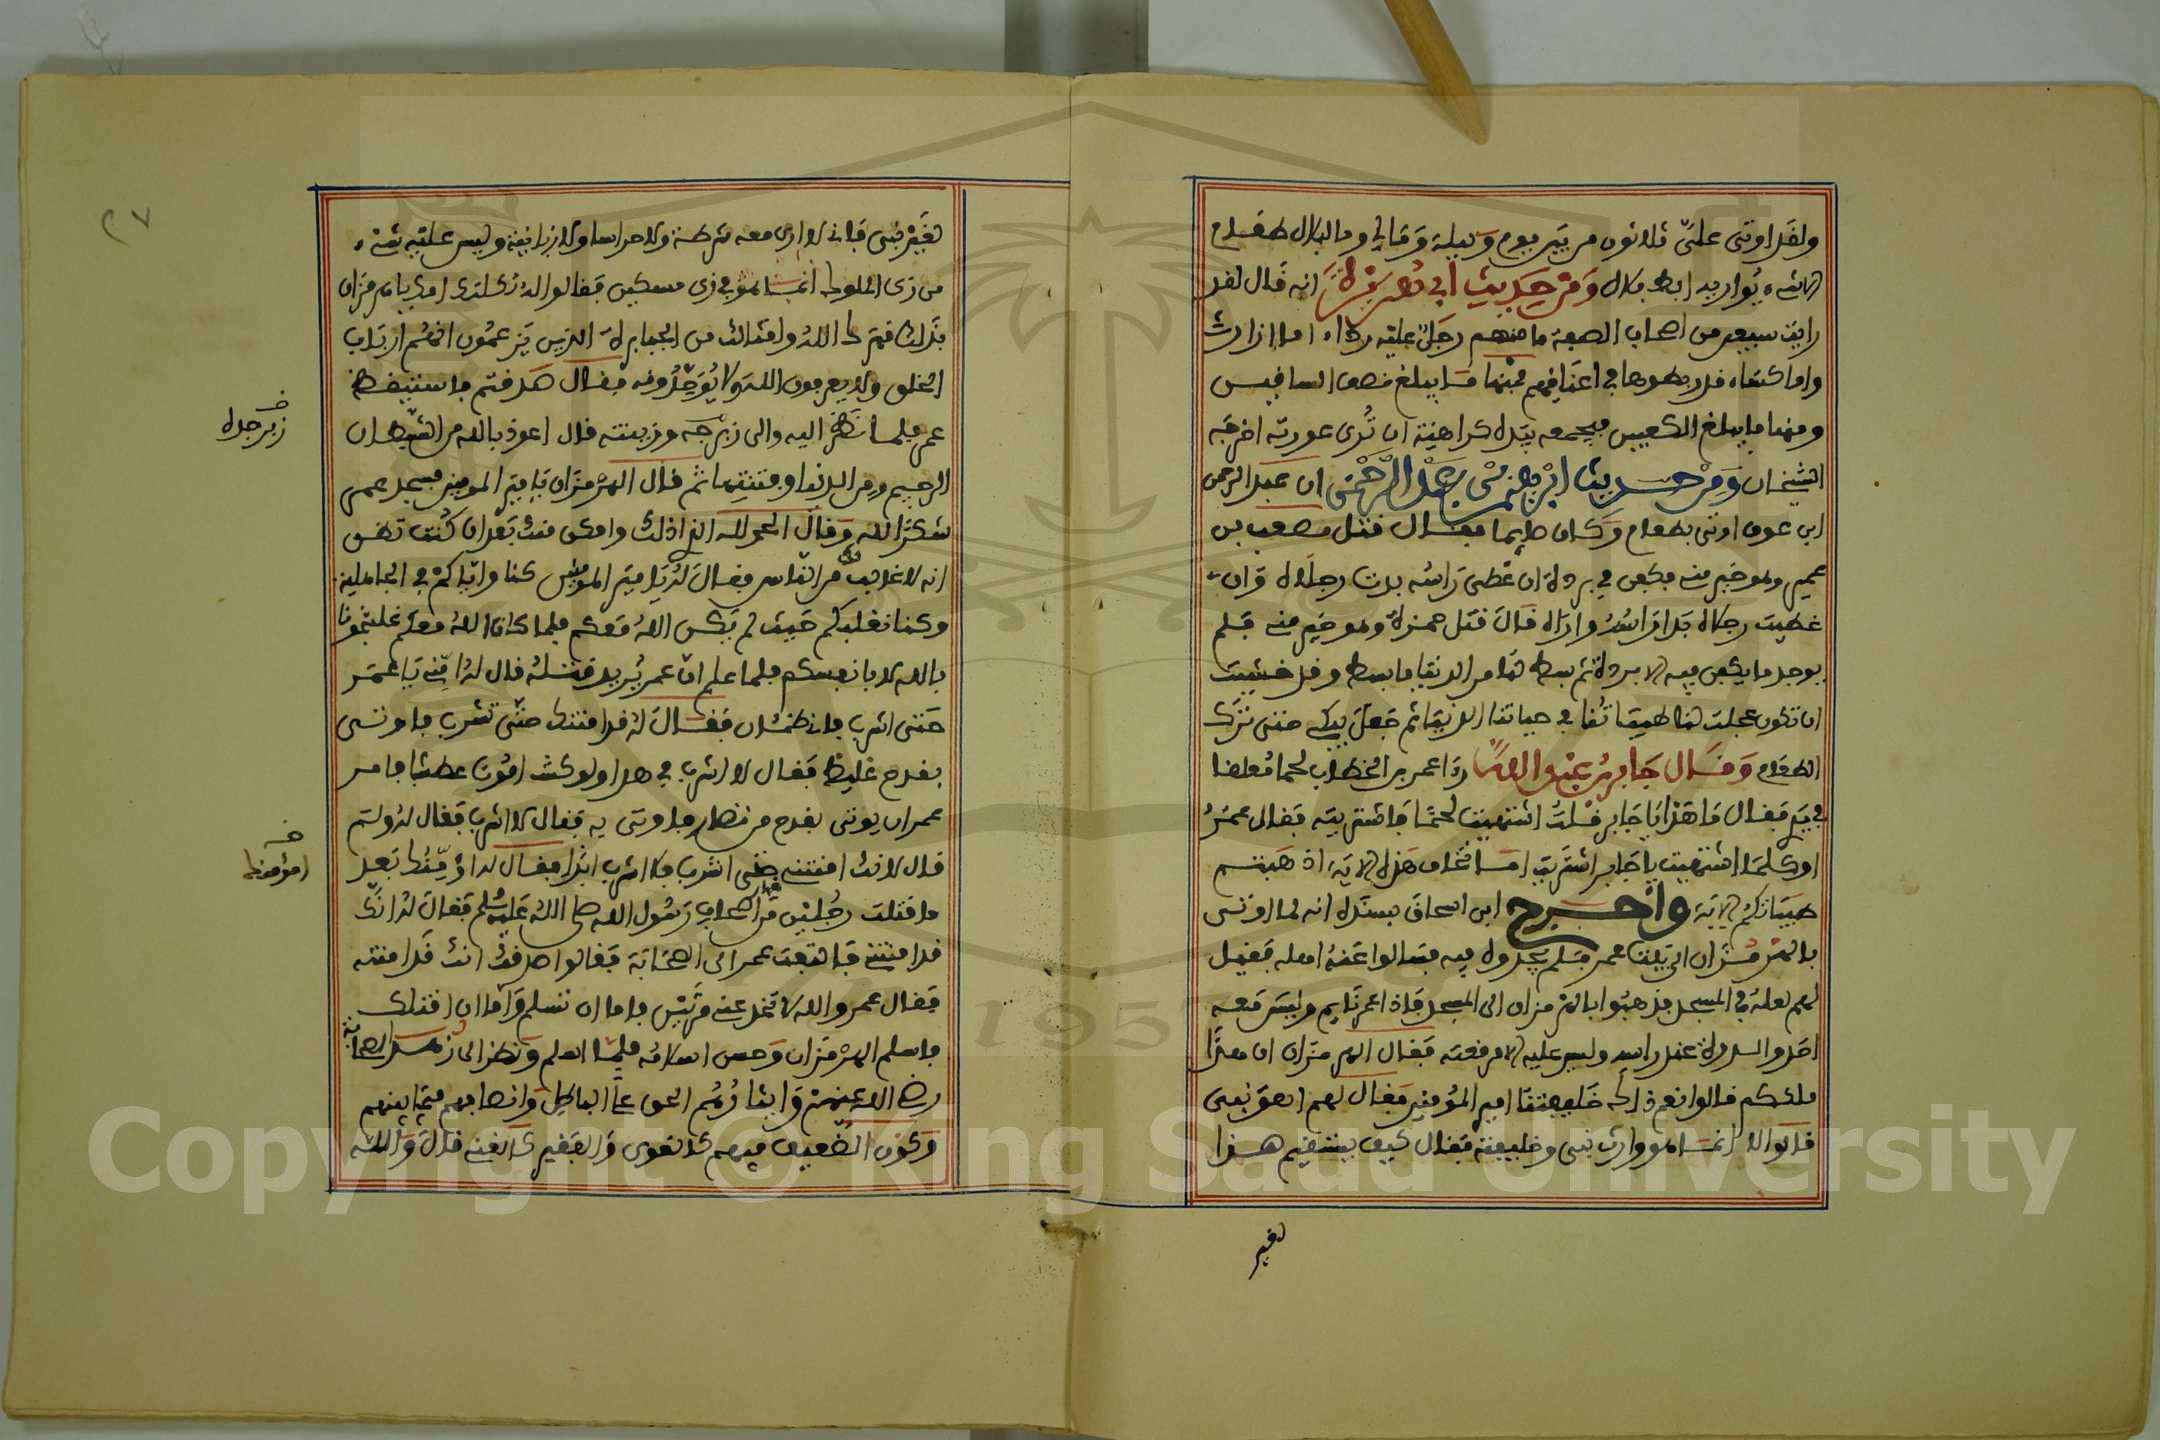 ولقد اوتى علىّ ثلاثون من بين يوم وليلة ومالي ولبلال طعام
الا شىء يواريه ابط بلال ومن حديث ابي هريرة انه قال لقد
رايت سبعين من اصحاب الصفة ما منهم رجل عليه رداء اما ازار
واما كساء قد ربطوها في اعناقهم فمنها ما يبلغ نصف الساقين
ومنها ما يبلغ الكعبين فيجمعه بيده كراهية ان تُرى عورته اخرجه
الشيخان ومن حديث ابرهيم بن عبد الرحمن ان عبد الرحمن
ابن عوف اوتى بطعام وكان صايما فقال قتل مصعب بن
عمير وهو خير منى فكفن في بردة ان غطى راسه بدت رجلاه وان
غطيت رجلاه بدا راسه واراه قال قتل حمزة وهو خير منى فلم
يوجد ما يكفن فيه الا بردة ثم بسط لنا من الدنيا ما بسط وقد خشيت
ان تكون عجلت لنا طيباتنا في حياتنا الدنيا ثم جعل يبكي حتى ترك
الطعام وقال جابر بن عبد الله را عمر بن الخطاب لحما معلقا
في يدي فقال ما هذا يا جابر قلت اشتهيت لحما فاشتريته فقال عمر
او كلما اشتهيت يا جابر اشتريت اما تخاف هذه الاية اذهبتم
طيباتكم الاية واخرج ابن اسحاق بسنده انه لما اوتى
بالهرمزان الى بيت عمر فلم يجدوه فيه فسالوا عنه اهله فقيل
لهم لعله في المسجد فذهبوا بالهرمزان الى المسجد فاذا عمر نايم وليس معه
احد والدرة عند راسه وليس عليه الا مرقعته فقال الهرمزان ان هذا
ملككم قالوا نعم ذلك خليفتنا امير المؤمنين فقال لهم اهو نبى
قالوا لا انما هو وارث نبى وخليفته فقال كيف يستقيم هذا
لغير
لغير نبى فاني لا ارى معه شرطة ولا حراسا ولا زبانية وليس عليه شىء
من زى الملوك انما هو في زى مسكين فقالوا له ثكلتك امك يا هرمزان
بذلك قهرك الله وامثالك من الجبابرة الذين يزعمون انهم ارباب
الخلق ولا يعرفون الله ولا يوحدونه فقال صدقتم فاستيقظ
عمر فلما نظر اليه والى زبرجه وزينته قال اعوذ بالله من الشيطان
الرجيم ومن الدنيا وفتنتها ثم قال الهرمزان يا امير المومنين فسجد عمر
شكرا لله وقال الحمد لله الذي اذلك وامكن منك بعد ان كنت تظن
انه لا غالب لك من الناس فقال له يا امير المومنين كنا واياكم في الجاهلية
وكنا نغلبكم حيث لم يكن الله معكم فلما كان الله معكم غلبتمونا
بالله لا بانفسكم فلما علم ان عمر يريد قتله قال له امّني يا عمر
حتى اشرب فاني ظمئان فقال له قد امنتك حتى تشرب فاوتى
بقدح غليظ فقال لا اشرب في هذا ولو كنت اموت عطشا فامر
عمر ان يوتى بقدح من نضار فاوتى به فقال لا اشرب فقال له ولم
قال لانك امنتنى حتى اشرب فلا اشرب ابدا فقال له اؤمّنك بعد
ما قتلت رجلين من اصحاب رسول الله صلى الله عليه وسلم فقال له انك
قد امنتني فالتفت عمر الى الصحابة فقالوا صدقك انك قد امنته
فقال عمر والله لا تخدعني مرتين فاما ان تسلم واما ان اقتلك
فاسلم الهرمزان وحسن اسلامه فلما اسلم ونظر الى زهد الصحابة
رضي الله عنهم وايثارهم الحق على الباطل وانصافهم فيما بينهم
وكون الضعيف فيهم كالقوى والفقير كالغني قال والله
زبرجده
اؤمنك
٢٧
Copyright © King Saud University
1957